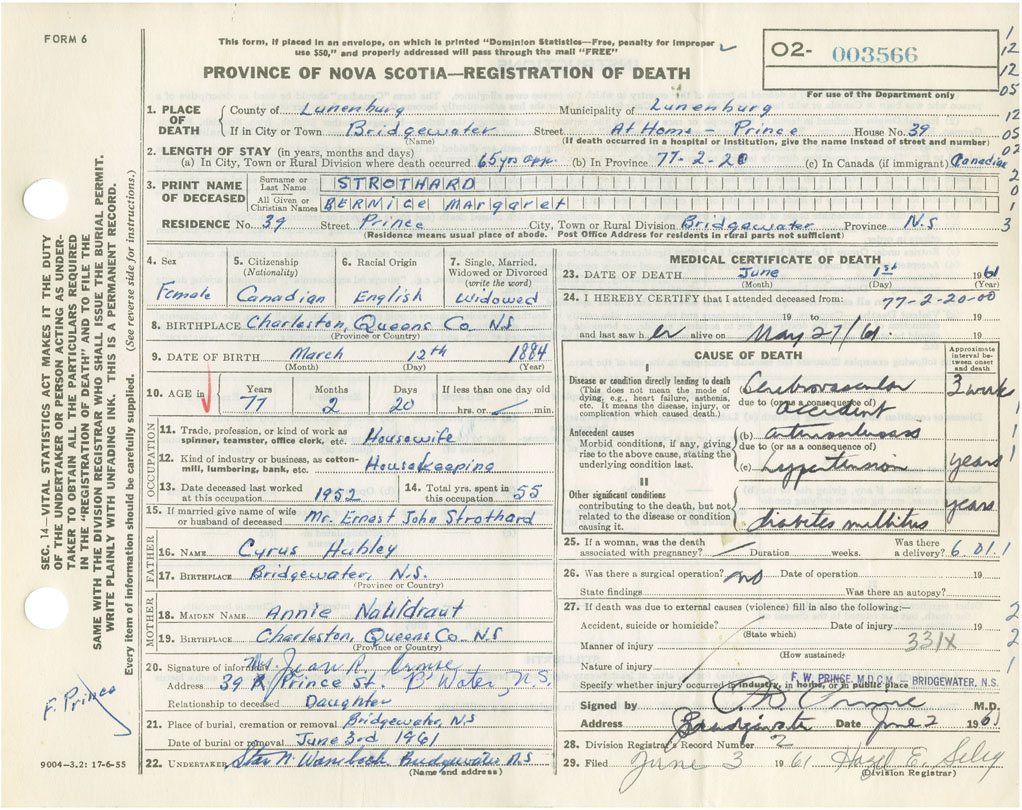 FORM 6
This form, if placed in an envelope, on which is printed "Dominion Statistics—Free, penalty for improper
use $50," and properly addressed will pass through the mail "FREE"
PROVINCE OF NOVA SCOTIA—REGISTRATION OF DEATH
02- 003566
For use of the Department only
1. PLACE OF DEATH
County of Lunenburg Municipality of Lunenburg
If in City or Town Bridgewater Street At Home - Prince House No. 39
(Name) (If death occurred in a hospital or Institution, give the name instead of street and number)
2. LENGTH OF STAY (in years, months and days)
(a) In City, Town or Rural Division where death occurred 65 yrs appr. (b) In Province 77-2-20 (c) In Canada (if immigrant) Canadian
3. PRINT NAME OF DECEASED
Surname or Last Name STROTHARD
All Given or Christian Names BERNICE Margaret
RESIDENCE No. 39 Street Prince City, Town or Rural Division Bridgewater Province N.S
(Residence means usual place of abode. Post Office Address for residents in rural parts not sufficient)
4. Sex
Female
5. Citizenship (Nationality)
Canadian
6. Racial Origin
English
7. Single, Married, Widowed or Divorced (write the word)
Widowed
8. BIRTHPLACE Charleston, Queens Co N.S
(Province or Country)
9. DATE OF BIRTH March 12th 1884
(Month) (Day) (Year)
10. AGE in
Years Months Days If less than one day old
77 2 20 hrs. or min.
OCCUPATION
11. Trade, profession, or kind of work as spinner, teamster, office clerk, etc. Housewife
12. Kind of industry or business, as cotton-mill, lumbering, bank, etc. Housekeeping
13. Date deceased last worked at this occupation 1952
14. Total yrs. spent in this occupation 55
15. If married give name of wife or husband of deceased Mr. Ernest John Strothard
FATHER
16. NAME Cyrus Hubley
17. BIRTHPLACE Bridgewater, N.S.
(Province or Country)
MOTHER
18. MAIDEN NAME Annie
19. BIRTHPLACE Charleston, Queens Co N.S
(Province or Country)
20. Signature of informant Mrs. Jean R.
Address 39 Prince St. B'Water, N.S.
Relationship to deceased Daughter
21. Place of burial, cremation or removal Bridgewater, N.S
Date of burial or removal June 3rd 1961
22. UNDERTAKER Bridgewater N S
(Name and address)
MEDICAL CERTIFICATE OF DEATH
23. DATE OF DEATH June 1st 1961
(Month) (Day) (Year)
24. I HEREBY CERTIFY that I attended deceased from: 77-2-20-00
19 to 19
and last saw her alive on May 27/61. 19
CAUSE OF DEATH
Approximate interval between onset and death
I
Disease or condition directly leading to death
(This does not mean the mode of dying, e.g., heart failure, asthenia, etc. It means the disease, injury, or complication which caused death.)
(a) Cerebrovascular 3 weeks
due to (or as a consequence of)
accident
Antecedent causes
Morbid conditions, if any, giving rise to the above cause, stating the underlying condition last.
(b) arteriosclerosis
due to (or as a consequence of)
(c) hypertension years
II
Other significant conditions
contributing to the death, but not related to the disease or condition causing it.
diabetes mellitus years
25. If a woman, was the death associated with pregnancy? Duration weeks. Was there a delivery? 6.01.1
26. Was there a surgical operation? no Date of operation 19
State findings Was there an autopsy?
27. If death was due to external causes (violence) fill in also the following:—
Accident, suicide or homicide? Date of injury 19
(State which)
Manner of injury 331X
(How sustained)
Nature of injury
F. W. PRINCE. M.D.C.M. — BRIDGEWATER, N.S.
Specify whether injury occurred in industry, in home, or in public place
Signed by M.D.
Address Bridgewater Date June 2 1961
28. Division Registrar's Record Number 2
29. Filed June 3 1961 Hazel E.
(Division Registrar)
SEC. 14—VITAL STATISTICS ACT MAKES IT THE DUTY
OF THE UNDERTAKER OR PERSON ACTING AS UNDER-
TAKER TO OBTAIN ALL THE PARTICULARS REQUIRED
IN THE "REGISTRATION OF DEATH" AND TO FILE THE
SAME WITH THE DIVISION REGISTRAR WHO SHALL ISSUE THE BURIAL PERMIT.
WRITE PLAINLY WITH UNFADING INK. THIS IS A PERMANENT RECORD.
Every item of information should be carefully supplied. (See reverse side for instructions.)
F. Prince
9004—3.2: 17-6-55
1
12
12
05
12
05
02
2
0
1
3
1
1
1
2
2
1